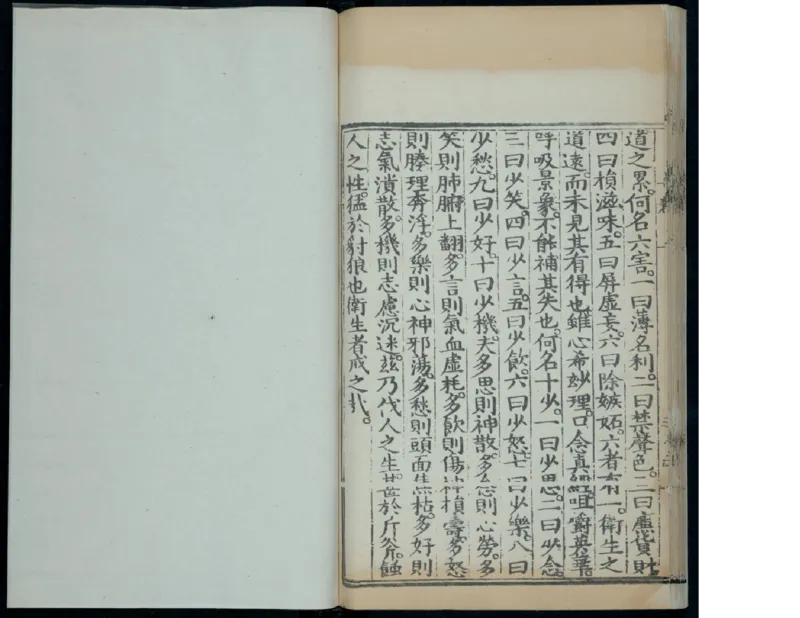 道之累。何名六害。一曰薄名利。二曰禁聲色。三曰廉貨財
四曰損滋味。五曰屏虛妄。六曰除嫉妬。六者有一。衛生之
道遠。而未見其有得也。雖心希妙理。口念真經。咀嚼英華。
呼吸景象。不能補其失也。何名十少。一曰少思。二曰少念。
三曰少笑。四曰少言。五曰少飲。六曰少怒。七曰少樂。八曰
少愁。九曰少好。十曰少機。夫多思則神散。多念則心勞。多
笑則肺腑上翻。多言則氣血虛耗。多飲則傷神損壽。多怒
則腠理奔浮。多樂則心神邪蕩。多愁則頭面焦枯。多好則
志氣潰散。多機則志慮沉迷。茲乃伐人之生甚於斤斧。蝕
人之性。猛於豺狼也衛生者戒之哉。